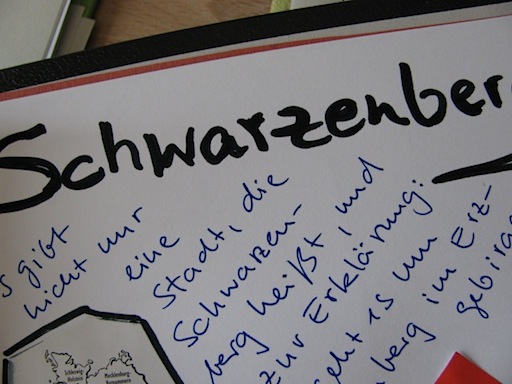 Schwarzenber
s gibt
nicht nur
eine
Stadt, die
Schwarzen-
berg heißt, und
zur Erklärung:
geht es um
berg im Erz-
gebirg
Schleswig-
Holstein
Mecklenburg-
Vorpommern